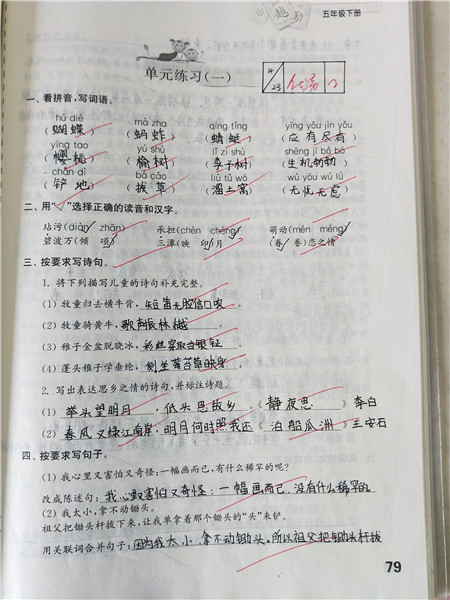 五年级下册
单元练习(一)
23 优
一、看拼音,写词语。
hú dié mà zha qīng tíng yīng yǒu jìn yǒu
(蝴蝶) (蚂蚱) (蜻蜓) (应有尽有)
yīng tao yú shù lǐ zi shù shēng jī bó bó
(樱桃) (榆树) (李子树) (生机勃勃)
chǎn dì bá cǎo liū tǔ wō wú yōu wú lǜ
(铲地) (拔草) (溜土窝) (无忧无虑)
二、用“✓”选择正确的读音和汉字。
玷污(diàn zhān) 承担(chén chéng) 萌动(mén méng)
碧波万(倾 顷) 三潭(映 印)月 (眷 誊)恋之情
三、按要求写诗句。
1. 将下列描写儿童的诗句补充完整。
(1) 牧童归去横牛背,短笛无腔信口吹。
(2) 牧童骑黄牛,歌声振林樾。
(3) 稚子金盆脱晓冰,彩丝穿取当银钲。
(4) 蓬头稚子学垂纶,侧坐莓苔草映身。
2. 写出表达思乡之情的诗句,并标注诗题。
(1) 举头望明月,低头思故乡。《静夜思》李白
(2) 春风又绿江南岸,明月何时照我还《泊船瓜洲》王安石
四、按要求写句子。
(1) 我心里又害怕又奇怪:一幅画而已,有什么稀罕的呢?
改成陈述句:我心里又害怕又奇怪:一幅画而已,没有什么稀罕的
(2) 我太小,拿不动锄头。
祖父把锄头杆拔下来,让我单拿着那个锄头的“头”来铲。
用关联词合并句子:因为我太小,拿不动锄头,所以祖父把锄头杆拔
79